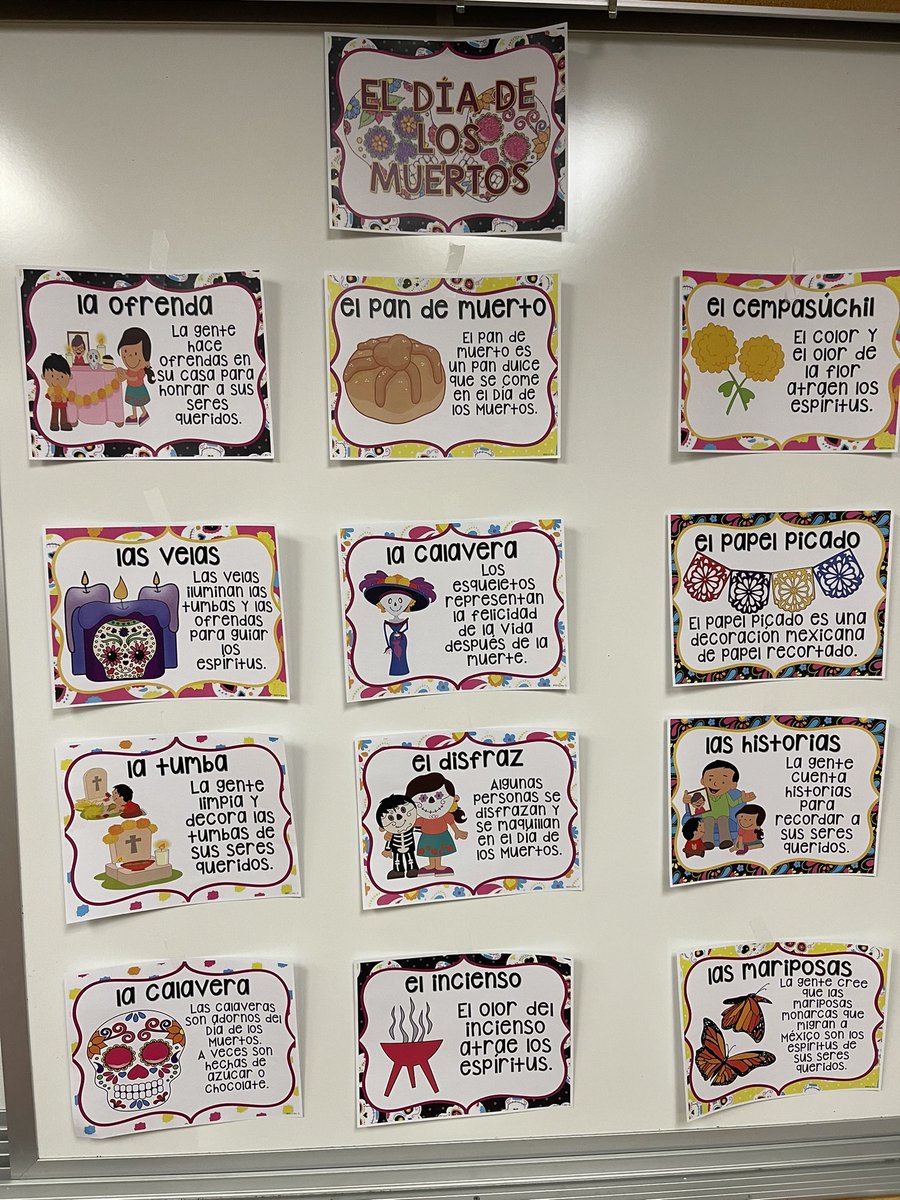 EL DÍA DE
LOS
MUERTOS
la ofrenda
La gente
hace
ofrendas en
su casa para
honrar a sus
seres
queridos.
el pan de muerto
El pan de
muerto es
un pan dulce
que se come
en el Día de
los Muertos.
el cempasúchil
El color y
el olor de
la flor
atraen los
espíritus.
las velas
Las velas
iluminan las
tumbas y las
ofrendas
para guiar
los
espíritus.
la calavera
Los
esqueletos
representan
la felicidad
de la vida
después de la
muerte.
el papel picado
El papel picado es una
decoración mexicana
de papel recortado.
la tumba
La gente
limpia y
decora las
tumbas de
sus seres
queridos.
el disfraz
Algunas
personas se
disfrazan y
se maquillan
en el Día de
los Muertos.
las historias
La gente
cuenta
historias
para
recordar a
sus seres
queridos.
la calavera
Las calaveras
son adornos del
Día de los
Muertos.
A veces son
hechas de
azúcar o
chocolate.
el incienso
El olor del
incienso
atrae los
espíritus.
las mariposas
La gente cree
que las
mariposas
monarcas que
migran a
México son los
espíritus de
sus seres
queridos.